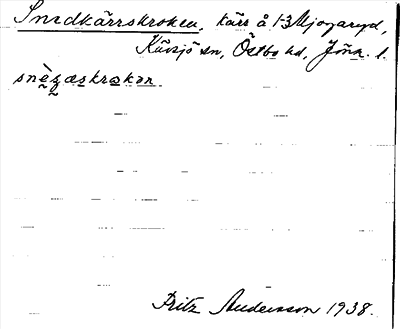 Snedkärrskroken, kärr å 1-3 Mjogaryd,
Kävsjö sn, Östbo hd, Jönk. l.
snèʒæskrokən
Fritz Andersson 1938.